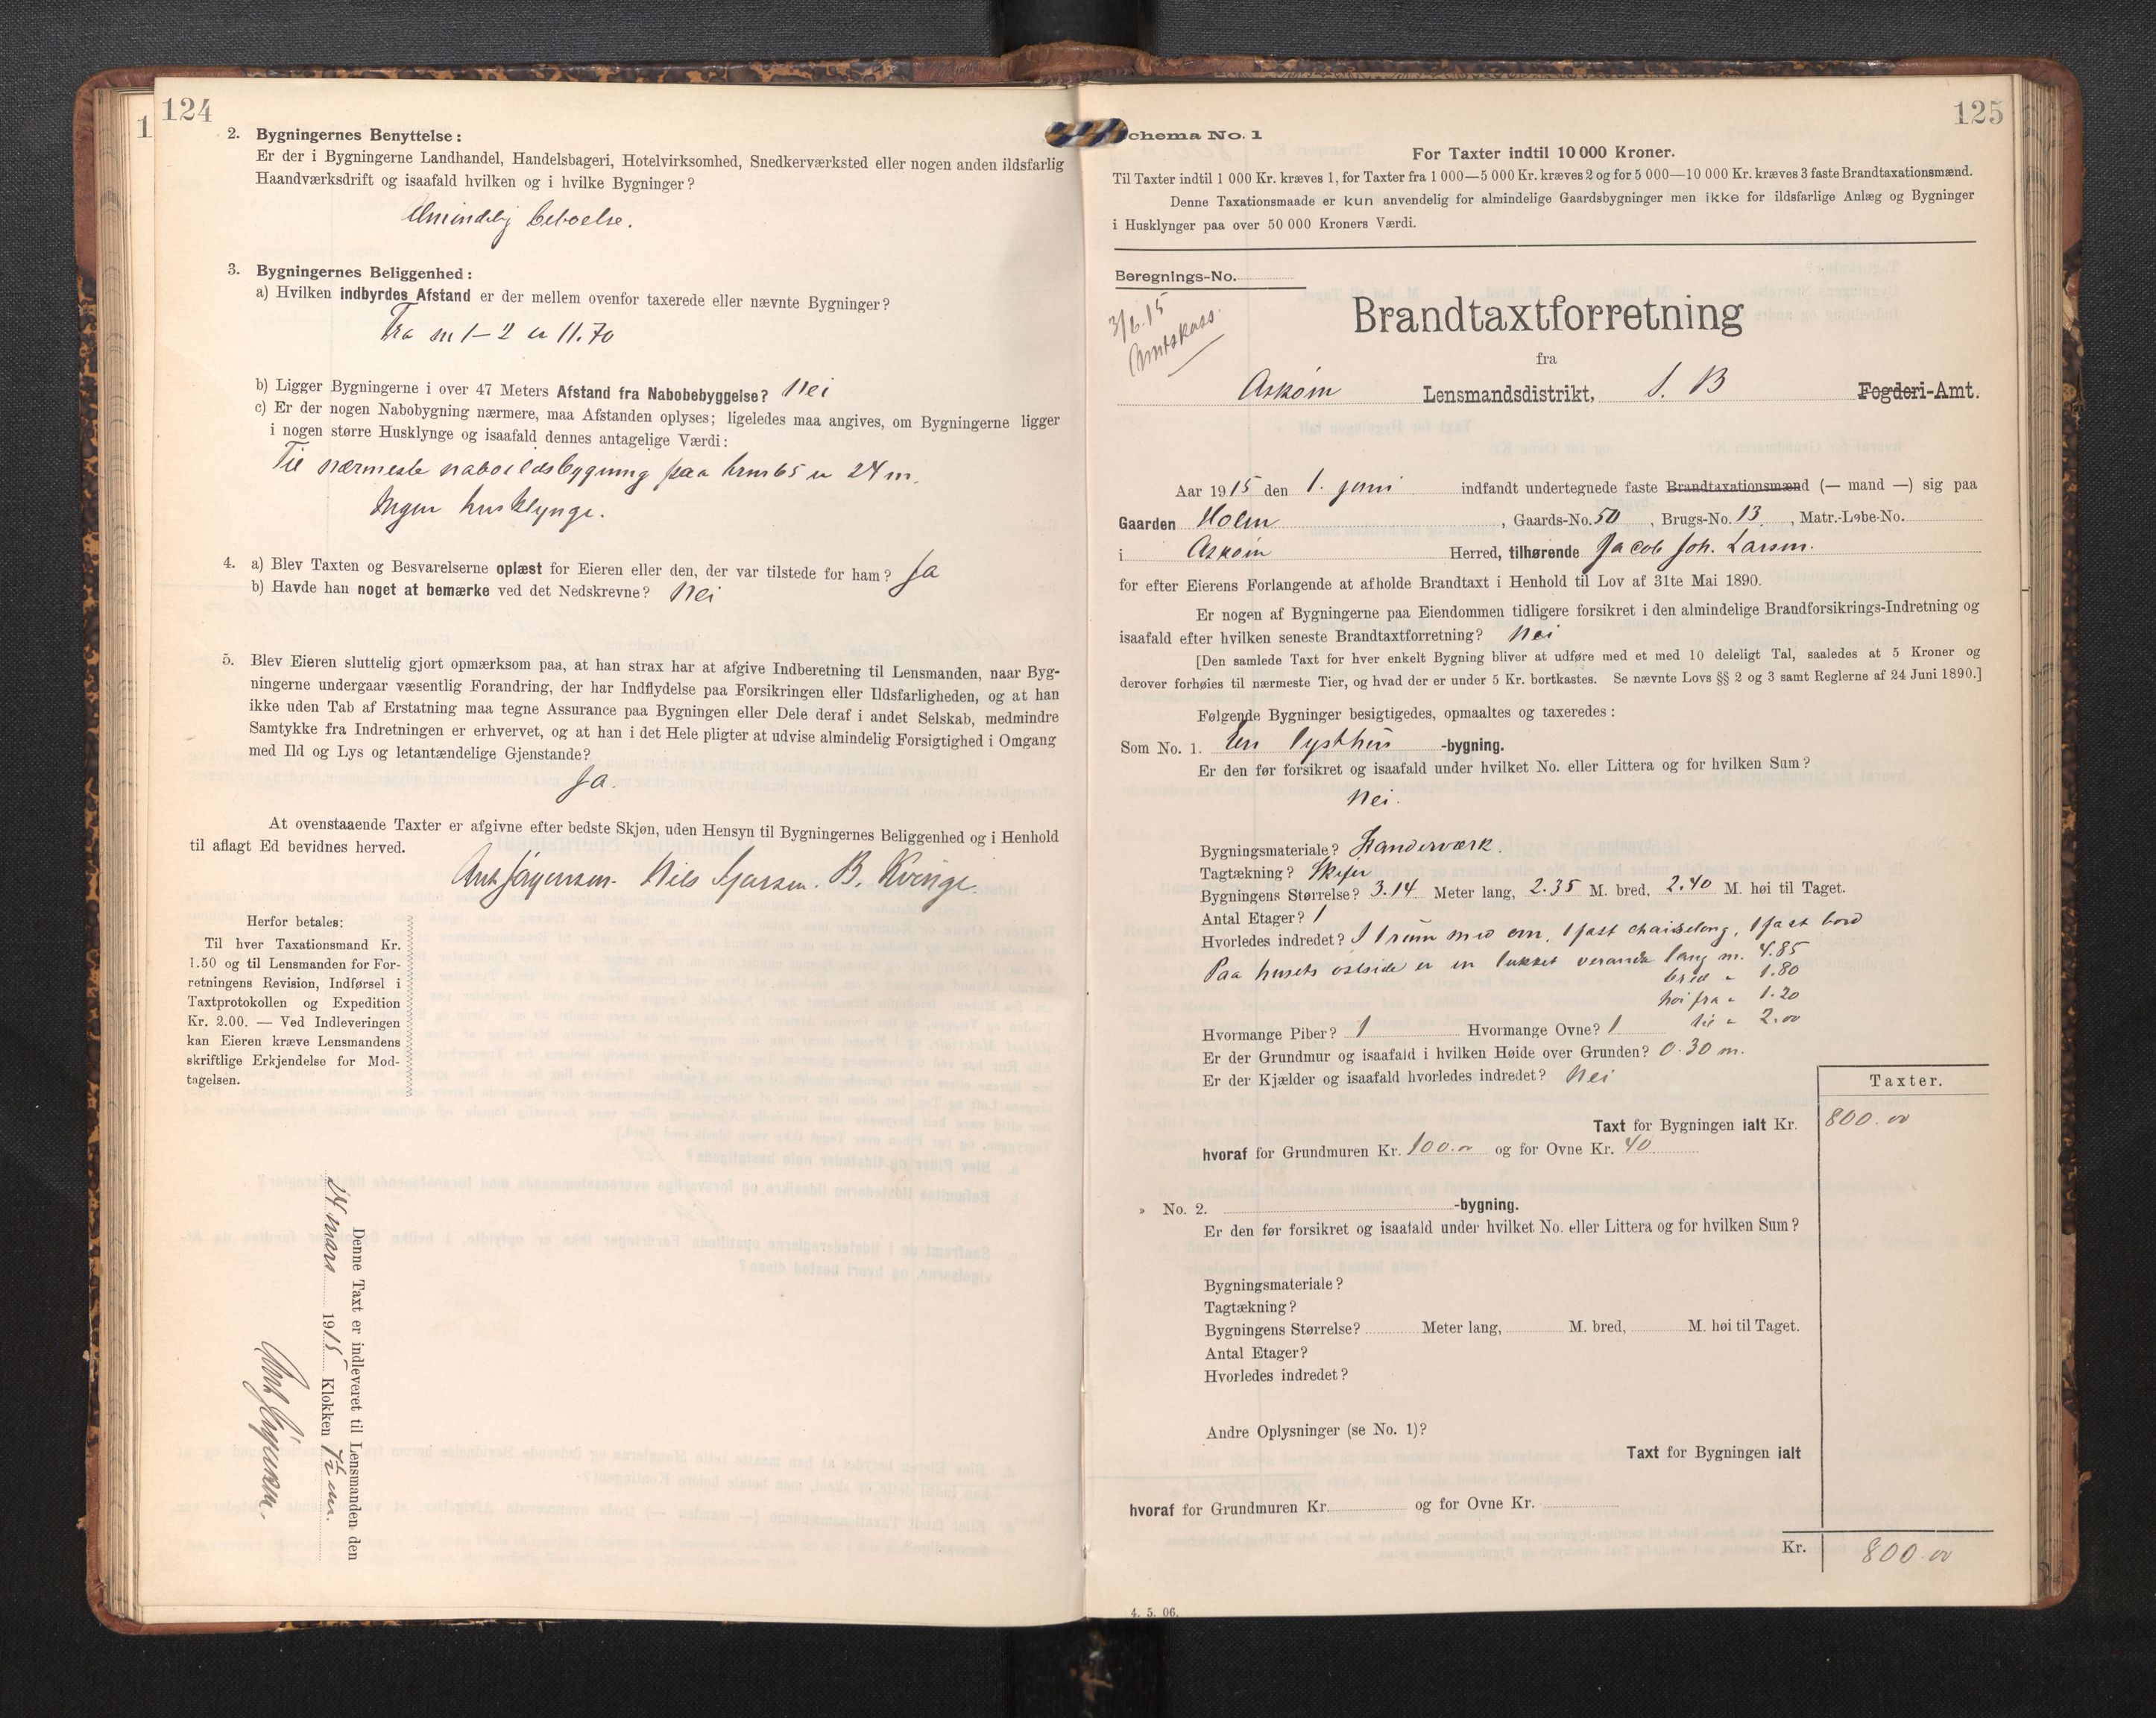 124
1
2. Bygningernes Benyttelse:
Er der i Bygningerne Landhandel, Handelsbageri, Hotelvirksomhed, Snedkerværksted eller nogen anden ildsfarlig
Haandværksdrift og isaafald hvilken og i hvilke Bygninger?
Almindelig beboelse.
3. Bygningernes Beliggenhed:
a) Hvilken indbyrdes Afstand er der mellem ovenfor taxerede eller nævnte Bygninger?
Fra no 1–2 er 11.70
b) Ligger Bygningerne i over 47 Meters Afstand fra Nabobebyggelse? Nei
c) Er der nogen Nabobygning nærmere, maa Afstanden oplyses; ligeledes maa angives, om Bygningerne ligger
i nogen større Husklynge og isaafald dennes antagelige Værdi:
Til nærmeste nabo ildsbygning paa brnr 65 er 24 m.
Ingen husklynge.
4. a) Blev Taxten og Besvarelserne oplæst for Eieren eller den, der var tilstede for ham? Ja
b) Havde han noget at bemærke ved det Nedskrevne? Nei
5. Blev Eieren sluttelig gjort opmærksom paa, at han strax har at afgive Indberetning til Lensmanden, naar Byg-
ningerne undergaar væsentlig Forandring, der har Indflydelse paa Forsikringen eller Ildsfarligheden, og at han
ikke uden Tab af Erstatning maa tegne Assurance paa Bygningen eller Dele deraf i andet Selskab, medmindre
Samtykke fra Indretningen er erhvervet, og at han i det Hele pligter at udvise almindelig Forsigtighed i Omgang
med Ild og Lys og letantændelige Gjenstande?
Ja.
At ovenstaaende Taxter er afgivne efter bedste Skjøn, uden Hensyn til Bygningernes Beliggenhed og i Henhold
til aflagt Ed bevidnes herved.
Ant Jörgensen. Nils B. Kvinge.
Herfor betales:
Til hver Taxationsmand Kr.
1.50 og til Lensmanden for For-
retningens Revision, Indførsel i
Taxtprotokollen og Expedition
Kr. 2.00. — Ved Indleveringen
kan Eieren kræve Lensmandens
skriftlige Erkjendelse for Mod-
tagelsen.
Denne Taxt er indleveret til Lensmanden den
24 mars 1915 Klokken
Ant Jörgensen.
125
chema No. 1
For Taxter indtil 10 000 Kroner.
Til Taxter indtil 1 000 Kr. kræves 1, for Taxter fra 1 000—5 000 Kr. kræves 2 og for 5 000—10 000 Kr. kræves 3 faste Brandtaxationsmænd.
Denne Taxationsmaade er kun anvendelig for almindelige Gaardsbygninger men ikke for ildsfarlige Anlæg og Bygninger
i Husklynger paa over 50 000 Kroners Værdi.
Beregnings-No.
3/6.15
Amtskass.
Brandtaxtforretning
fra
Askøin Lensmandsdistrikt, S. B Fogderi-Amt.
Aar 1915 den 1. juni indfandt undertegnede faste Brandtaxationsmænd (— mand —) sig paa
Gaarden Holm, Gaards-No. 50, Brugs-No. 13, Matr.-Løbe-No.
i Askøin Herred, tilhørende Jacob Joh. Larsen.
for efter Eierens Forlangende at afholde Brandtaxt i Henhold til Lov af 31te Mai 1890.
Er nogen af Bygningerne paa Eiendommen tidligere forsikret i den almindelige Brandforsikrings-Indretning og
isaafald efter hvilken seneste Brandtaxtforretning? Nei
[Den samlede Taxt for hver enkelt Bygning bliver at udføre med et med 10 deleligt Tal, saaledes at 5 Kroner og
derover forhøies til nærmeste Tier, og hvad der er under 5 Kr. bortkastes. Se nævnte Lovs §§ 2 og 3 samt Reglerne af 24 Juni 1890.]
Følgende Bygninger besigtigedes, opmaaltes og taxeredes:
Som No. 1. En lysthus -bygning.
Er den før forsikret og isaafald under hvilket No. eller Littera og for hvilken Sum?
Nei.
Bygningsmateriale? Standerværk.
Tagtækning? Skifer
Bygningens Størrelse? 3.14 Meter lang, 2.35 M. bred, 2.40 M. høi til Taget.
Antal Etager? 1
Hvorledes indredet? I 1 rum med ovn, 1 fast chaiselong, 1 fast bord
Paa husets østside er en lukket veranda lang m. 4.85
bred " 1.80
høi fra " 1.20
til " 2.00
Hvormange Piber? 1 Hvormange Ovne? 1
Er der Grundmur og isaafald i hvilken Høide over Grunden? 0.30 m.
Er der Kjælder og isaafald hvorledes indredet? Nei
Taxter.
Taxt for Bygningen ialt Kr. 800.00
hvoraf for Grundmuren Kr. 100.00 og for Ovne Kr. 40
» No. 2. -bygning.
Er den før forsikret og isaafald under hvilket No. eller Littera og for hvilken Sum?
Bygningsmateriale?
Tagtækning?
Bygningens Størrelse? Meter lang, M. bred, M. høi til Taget.
Antal Etager?
Hvorledes indredet?
Andre Oplysninger (se No. 1)?
Taxt for Bygningen ialt
hvoraf for Grundmuren Kr. og for Ovne Kr.
Kr. 800.00
4. 5. 06.